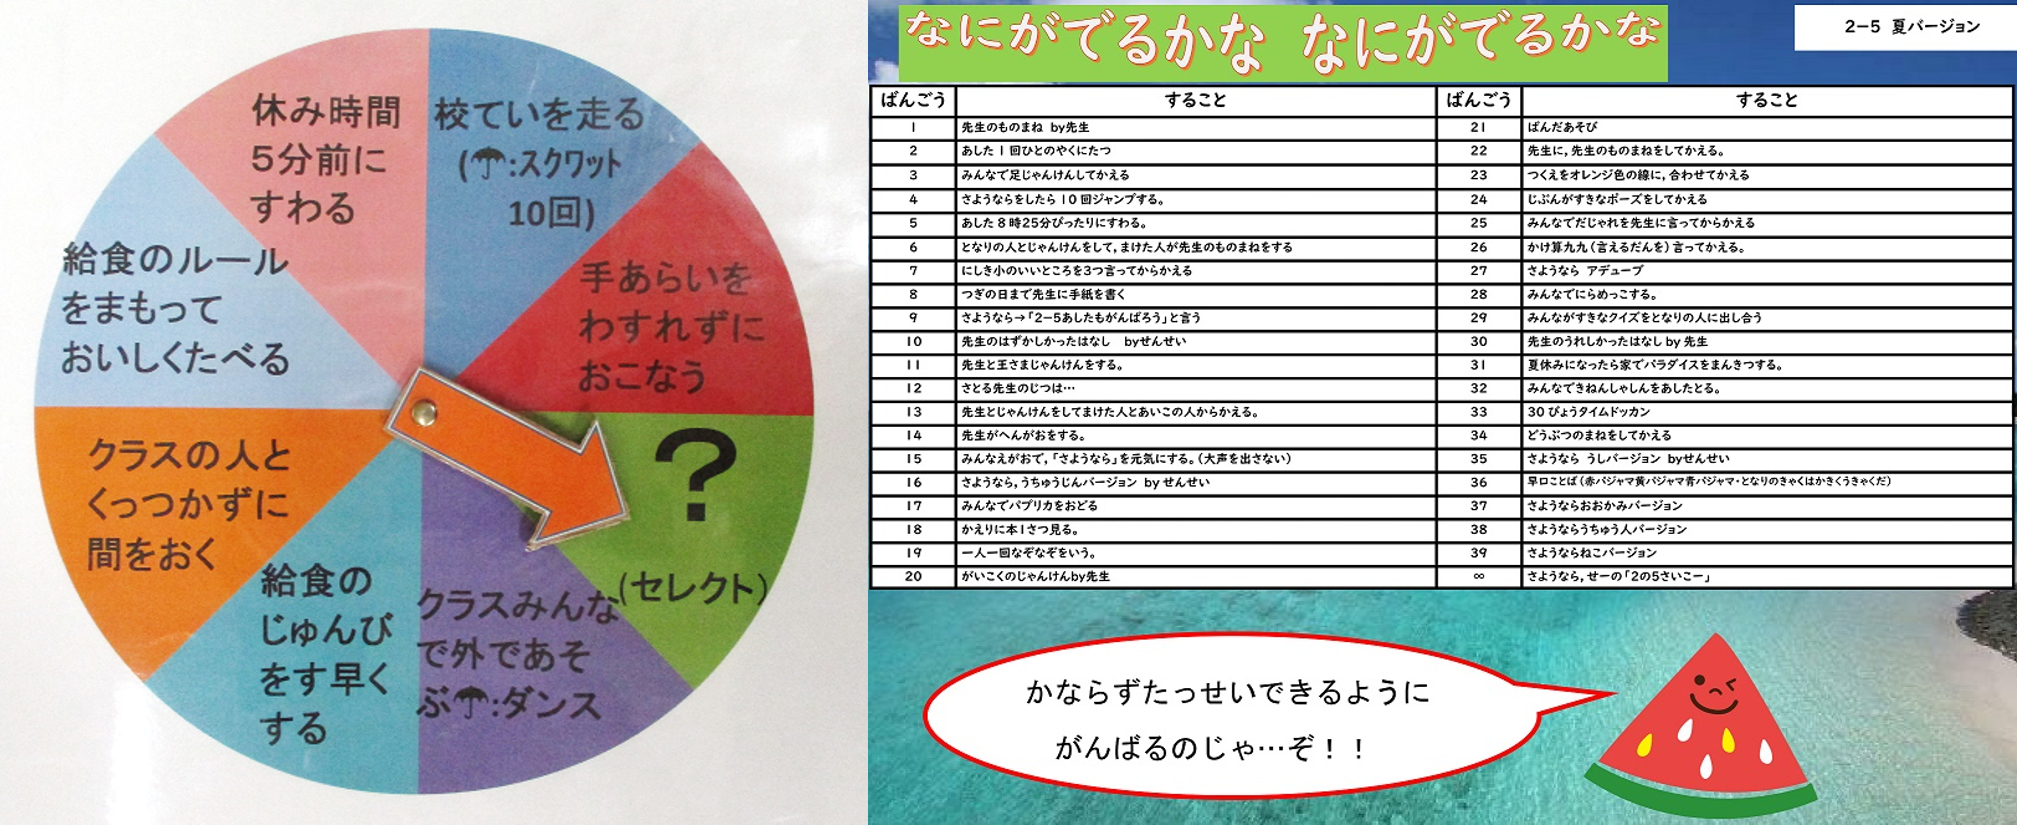 休み時間
5分前に
すわる
校ていを走る
(☂:スクワット
10回)
手あらいを
わすれずに
おこなう
?
(セレクト)
クラスみんな
で外であそ
ぶ☂:ダンス
給食の
じゅんび
をす早く
する
クラスの人と
くっつかずに
間をおく
給食のルール
をまもって
おいしくたべる
なにがでるかな なにがでるかな
2－5 夏バージョン
ばんごう すること ばんごう すること
1 先生のものまね by先生
2 あした1回ひとのやくにたつ
3 みんなで足じゃんけんしてかえる
4 さようならをしたら10回ジャンプする。
5 あした8時25分ぴったりにすわる。
6 となりの人とじゃんけんをして,まけた人が先生のものまねをする
7 にしき小のいいところを3つ言ってからかえる
8 つぎの日まで先生に手紙を書く
9 さようなら→「2－5あしたもがんばろう」と言う
10 先生のはずかしかったはなし byせんせい
11 先生と王さまじゃんけんをする。
12 さとる先生のじつは…
13 先生とじゃんけんをしてまけた人とあいこの人からかえる。
14 先生がへんがおをする。
15 みんなえがおで,「さようなら」を元気にする。(大声を出さない)
16 さようなら,うちゅうじんバージョン by せんせい
17 みんなでパプリカをおどる
18 かえりに本1さつ見る。
19 一人一回なぞなぞをいう。
20 がいこくのじゃんけんby先生
21 ぱんだあそび
22 先生に,先生のものまねをしてかえる。
23 つくえをオレンジ色の線に,合わせてかえる
24 じぶんがすきなポーズをしてかえる
25 みんなでだじゃれを先生に言ってからかえる
26 かけ算九九(言えるだんを)言ってかえる。
27 さようなら アデューブ
28 みんなでにらめっこする。
29 みんながすきなクイズをとなりの人に出し合う
30 先生のうれしかったはなし by 先生
31 夏休みになったら家でパラダイスをまんきつする。
32 みんなできねんしゃしんをあしたとる。
33 30びょうタイムドッカン
34 どうぶつのまねをしてかえる
35 さようなら うしバージョン byせんせい
36 早口ことば(赤パジャマ黄パジャマ青パジャマ・となりのきゃくはかきくうきゃくだ)
37 さようならおおかみバージョン
38 さようならうちゅう人バージョン
39 さようならねこバージョン
∞ さようなら,せーの「2の5さいこー」
かならずたっせいできるように
がんばるのじゃ…ぞ！！